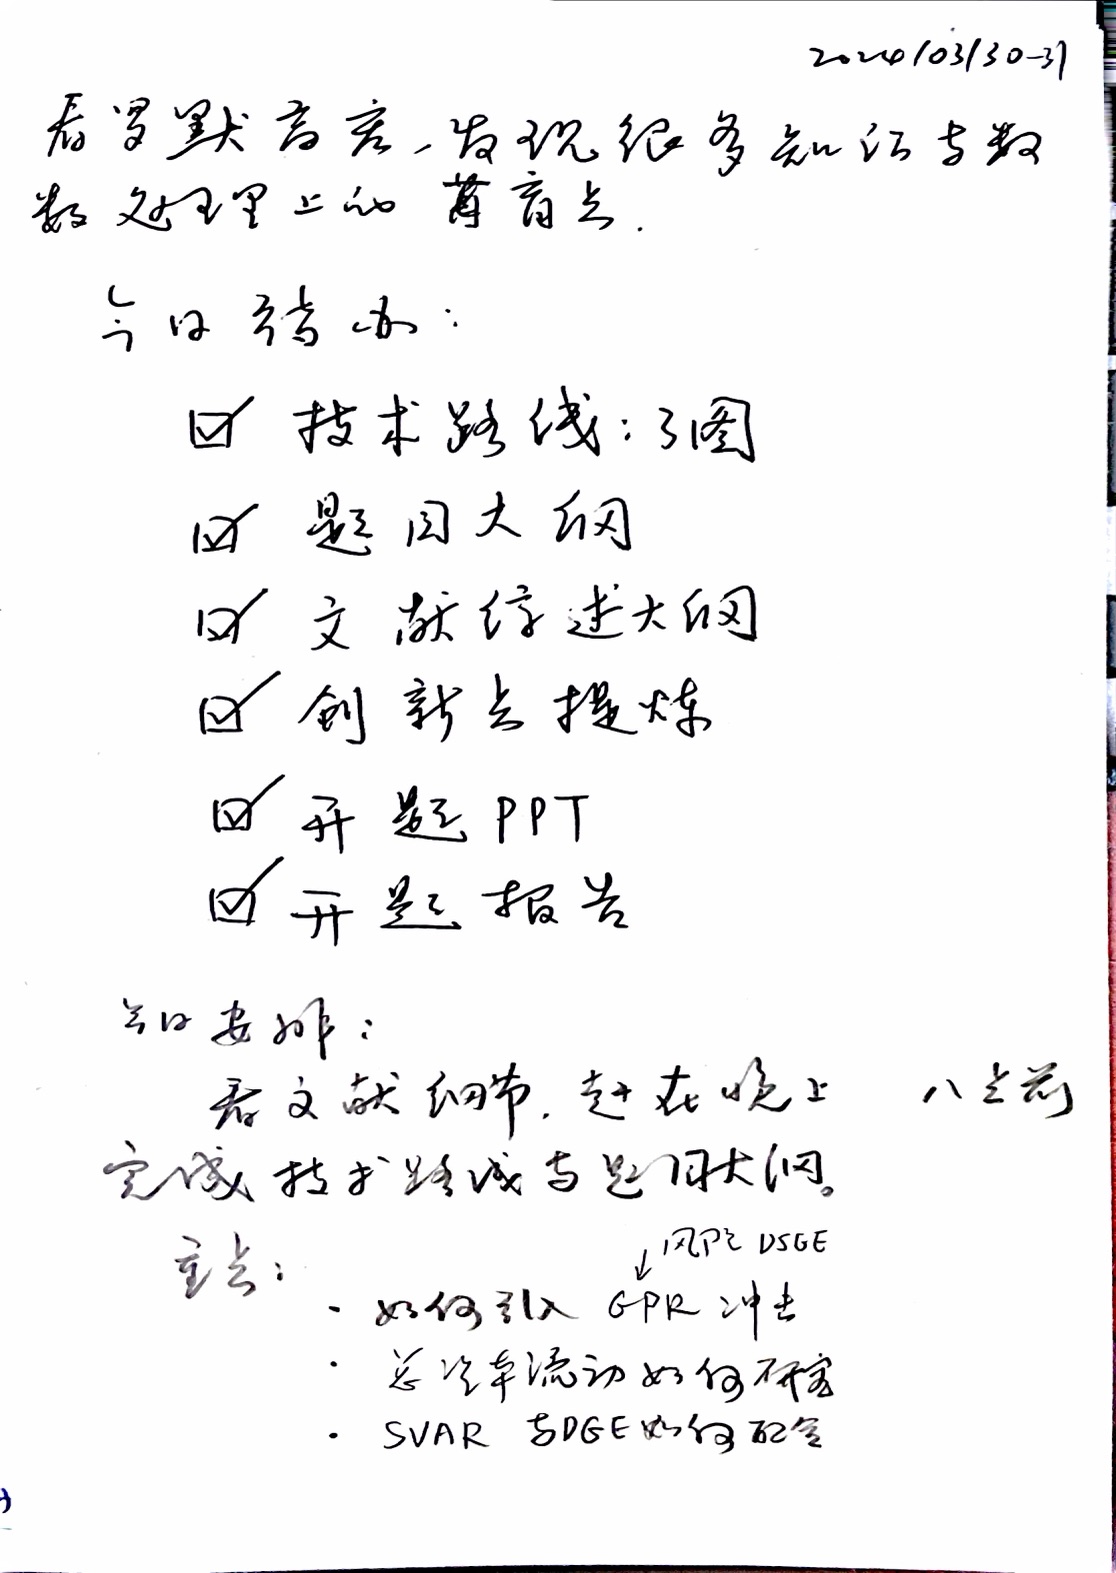 2024/03/30-31
看罗默高宏，发现很多知识与数
数处理上的盲点.
今日待办：
☑ 技术路线：3图
☑ 题目大纲
☑ 文献综述大纲
☑ 创新点提炼
☑ 开题PPT
☑ 开题报告
今日安排：
看文献细节，赶在晚上 八点前
完成技术路线与题目大纲。
重点：
风险 DSGE
· 如何引入 GPR 冲击
· 总资本流动如何研究
· SVAR 与DGE如何配合